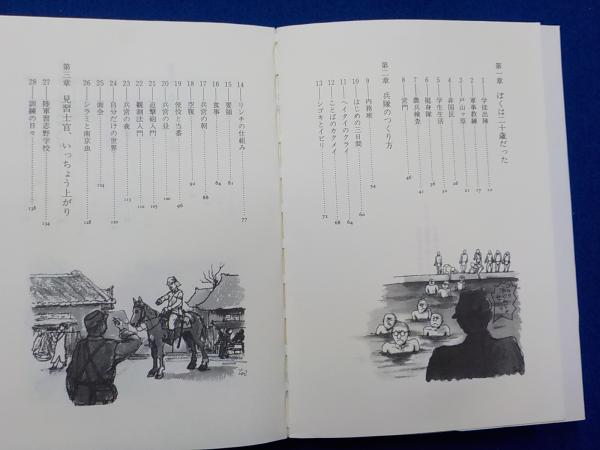 第一章 ぼくは二十歳だった
1 学徒出陣 10
2 軍事教練 17
3 戸山ヶ原 21
4 非国民 26
5 学生生活 30
6 挺身隊 36
7 徴兵検査 41
8 営門 46
第二章 兵隊のつくり方
9 内務班 54
10 はじめの三日間 60
11 ヘイタイのクライ 64
12 ことばのカクメイ 68
13 シゴキとイビリ 72
14 リンチの仕組み 77
15 要領 81
16 食事 84
17 兵営の朝 88
18 空腹 92
19 使役と当番 96
20 兵営の昼
21 迫撃砲入門
22 観測法入門 110
23 兵営の夜
24 自分だけの世界 120
25 面会 124
26 シラミと南京虫 128
第三章 見習士官、いっちょう上がり
27 陸軍習志野学校 134
28 訓練の日々 138